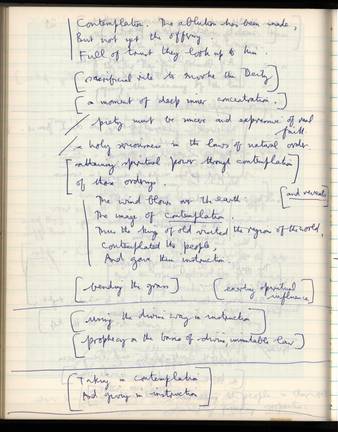 Contemplation. The ablution has been made,
But not yet the offering.
Full of trust they look up to him.
[sacrificial rite to invoke the Deity]
[a moment of deep inner concentration.]
// piety must be sincere and expressive of real
faith
/ a holy seriousness in the laws of natural order.
[ spiritual power through contemplation]
of those ordering.
[and reveals]
The wind blows over the earth
The image of Contemplation.
Thus the kings of old visited the regions of the world,
Contemplated the people,
And gave them instruction.
[bending the grass]
[ spiritual
influence]
[using the divine way in instruction]
[prophecy on the basis of divine immutable law]
[Taking in contemplation
And giving in instruction]